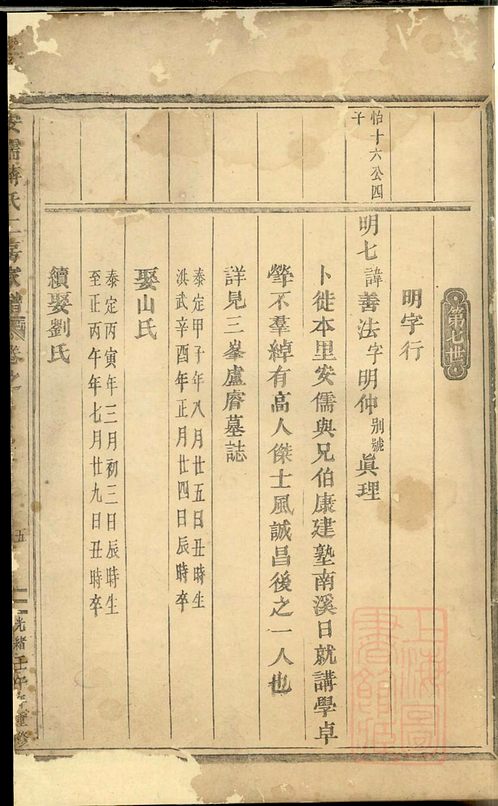 第七世
明字行
怡十六公四
子
明七諱善法字明仲別號眞理
卜徙本里安儒與兄伯康建塾南溪日就講學卓
犖不羣綽有高人傑士風誠昌後之一人也
詳見三峯盧𪧘墓誌
泰定甲子年八月廿五日丑時生
洪武辛酉年正月廿四日辰時卒
娶山氏
泰定丙寅年三月初三日辰時生
至正丙午年七月廿九日丑時卒
續娶劉氏
五
光緒壬午重修